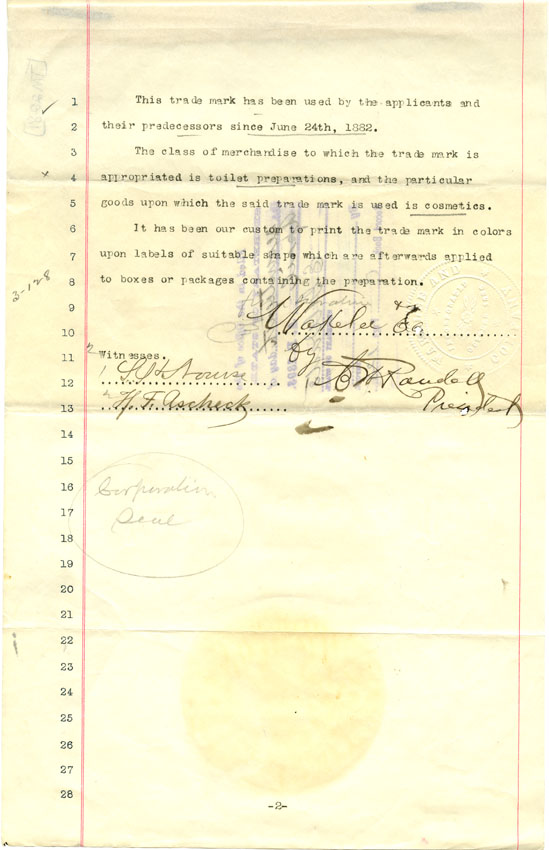 1 This trade mark has been used by the applicants and
2 their predecessors since June 24th, 1882.
3 The class of merchandise to which the trade mark is
4 appropriated is toilet preparations, and the particular
5 goods upon which the said trade mark is used is cosmetics.
6 It has been our custom to print the trade mark in colors
7 upon labels of suitable shape which are afterwards applied
8 to boxes or packages containing the preparation.
3-128
9
Wakelee & Co
10
by
11 Witnesses.
12
Randall
13 H. F. Ascheck
President
14
15
16 Corporation
17 Seal
18
19
20
21
22
23
24
25
26
27
28
-2-